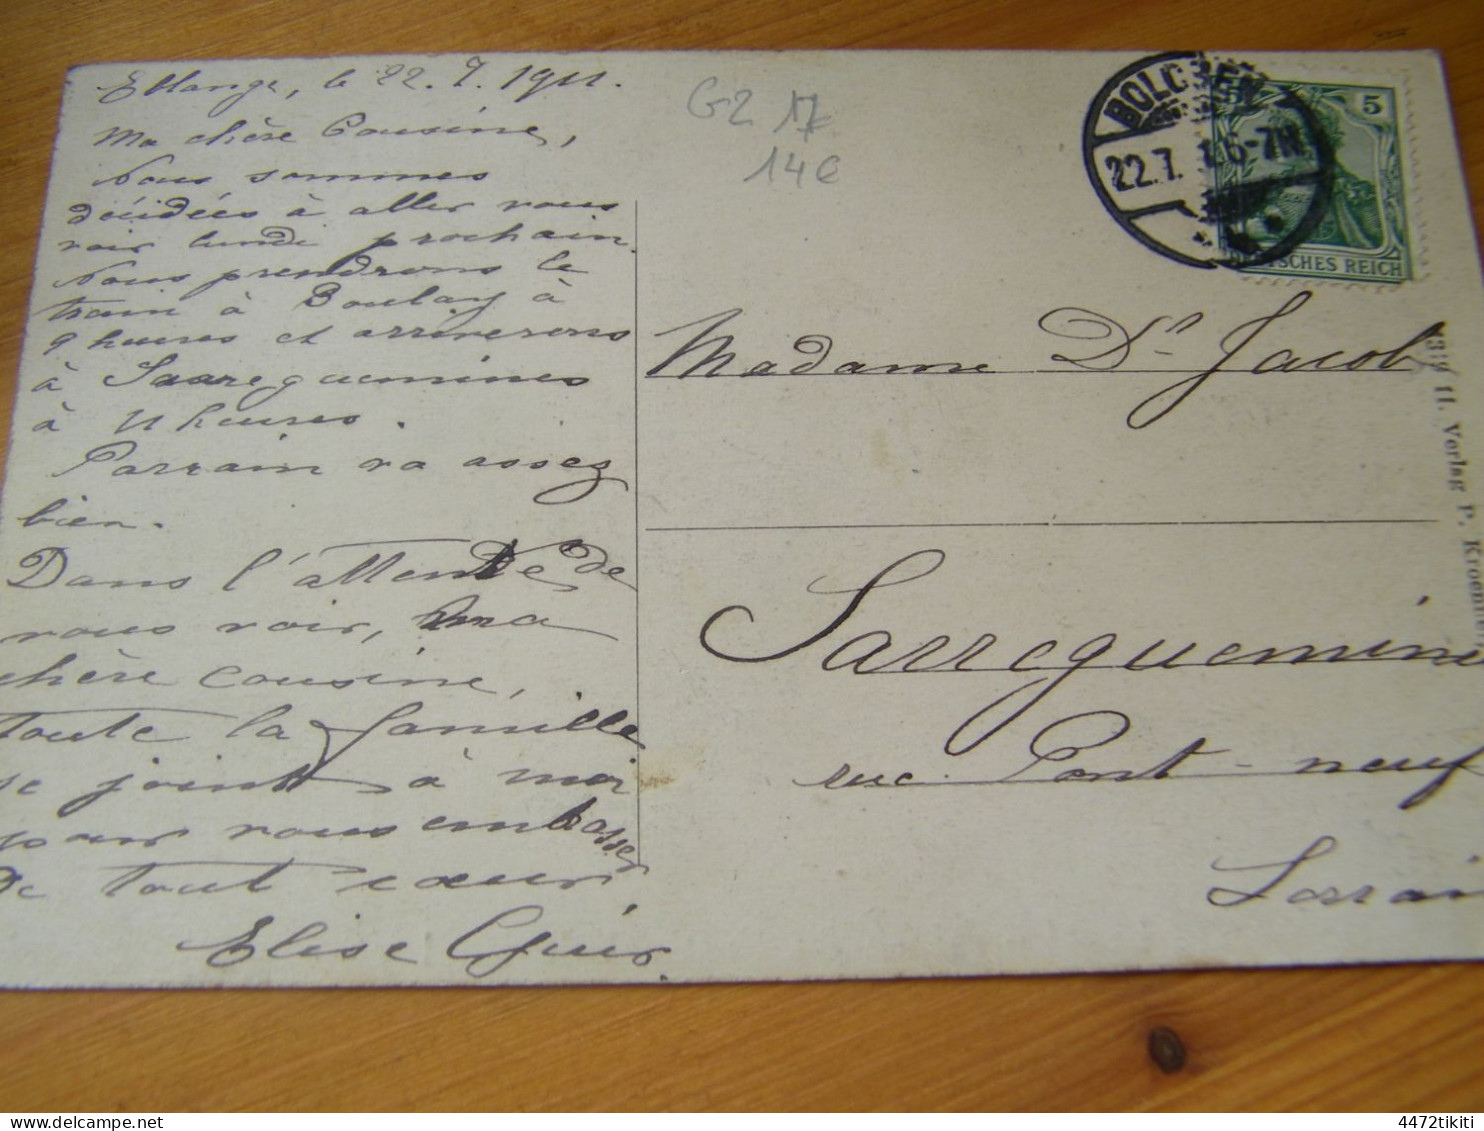 Eblange, le 22.7.1911.
Ma chère Cousine,
Nous sommes
décidées à aller vous
voir lundi prochain.
Nous prendrons le
train à Boulay à
9 heures et arriverons
à Sarreguemines
à 11 heures.
Parrain va assez
bien.
Dans l'attente de
vous voir, ma
chère cousine,
toute la famille
se joint à moi
pour vous embrasser
de tout cœur,
Elise
G2 17
14€
BOLCHEN
22.7. 6-7N
5
DEUTSCHES REICH
Madame Dr Jacob
Sarreguemine
rue Pont-neuf
Lorrain
II. Verlag P.
4472tikiti